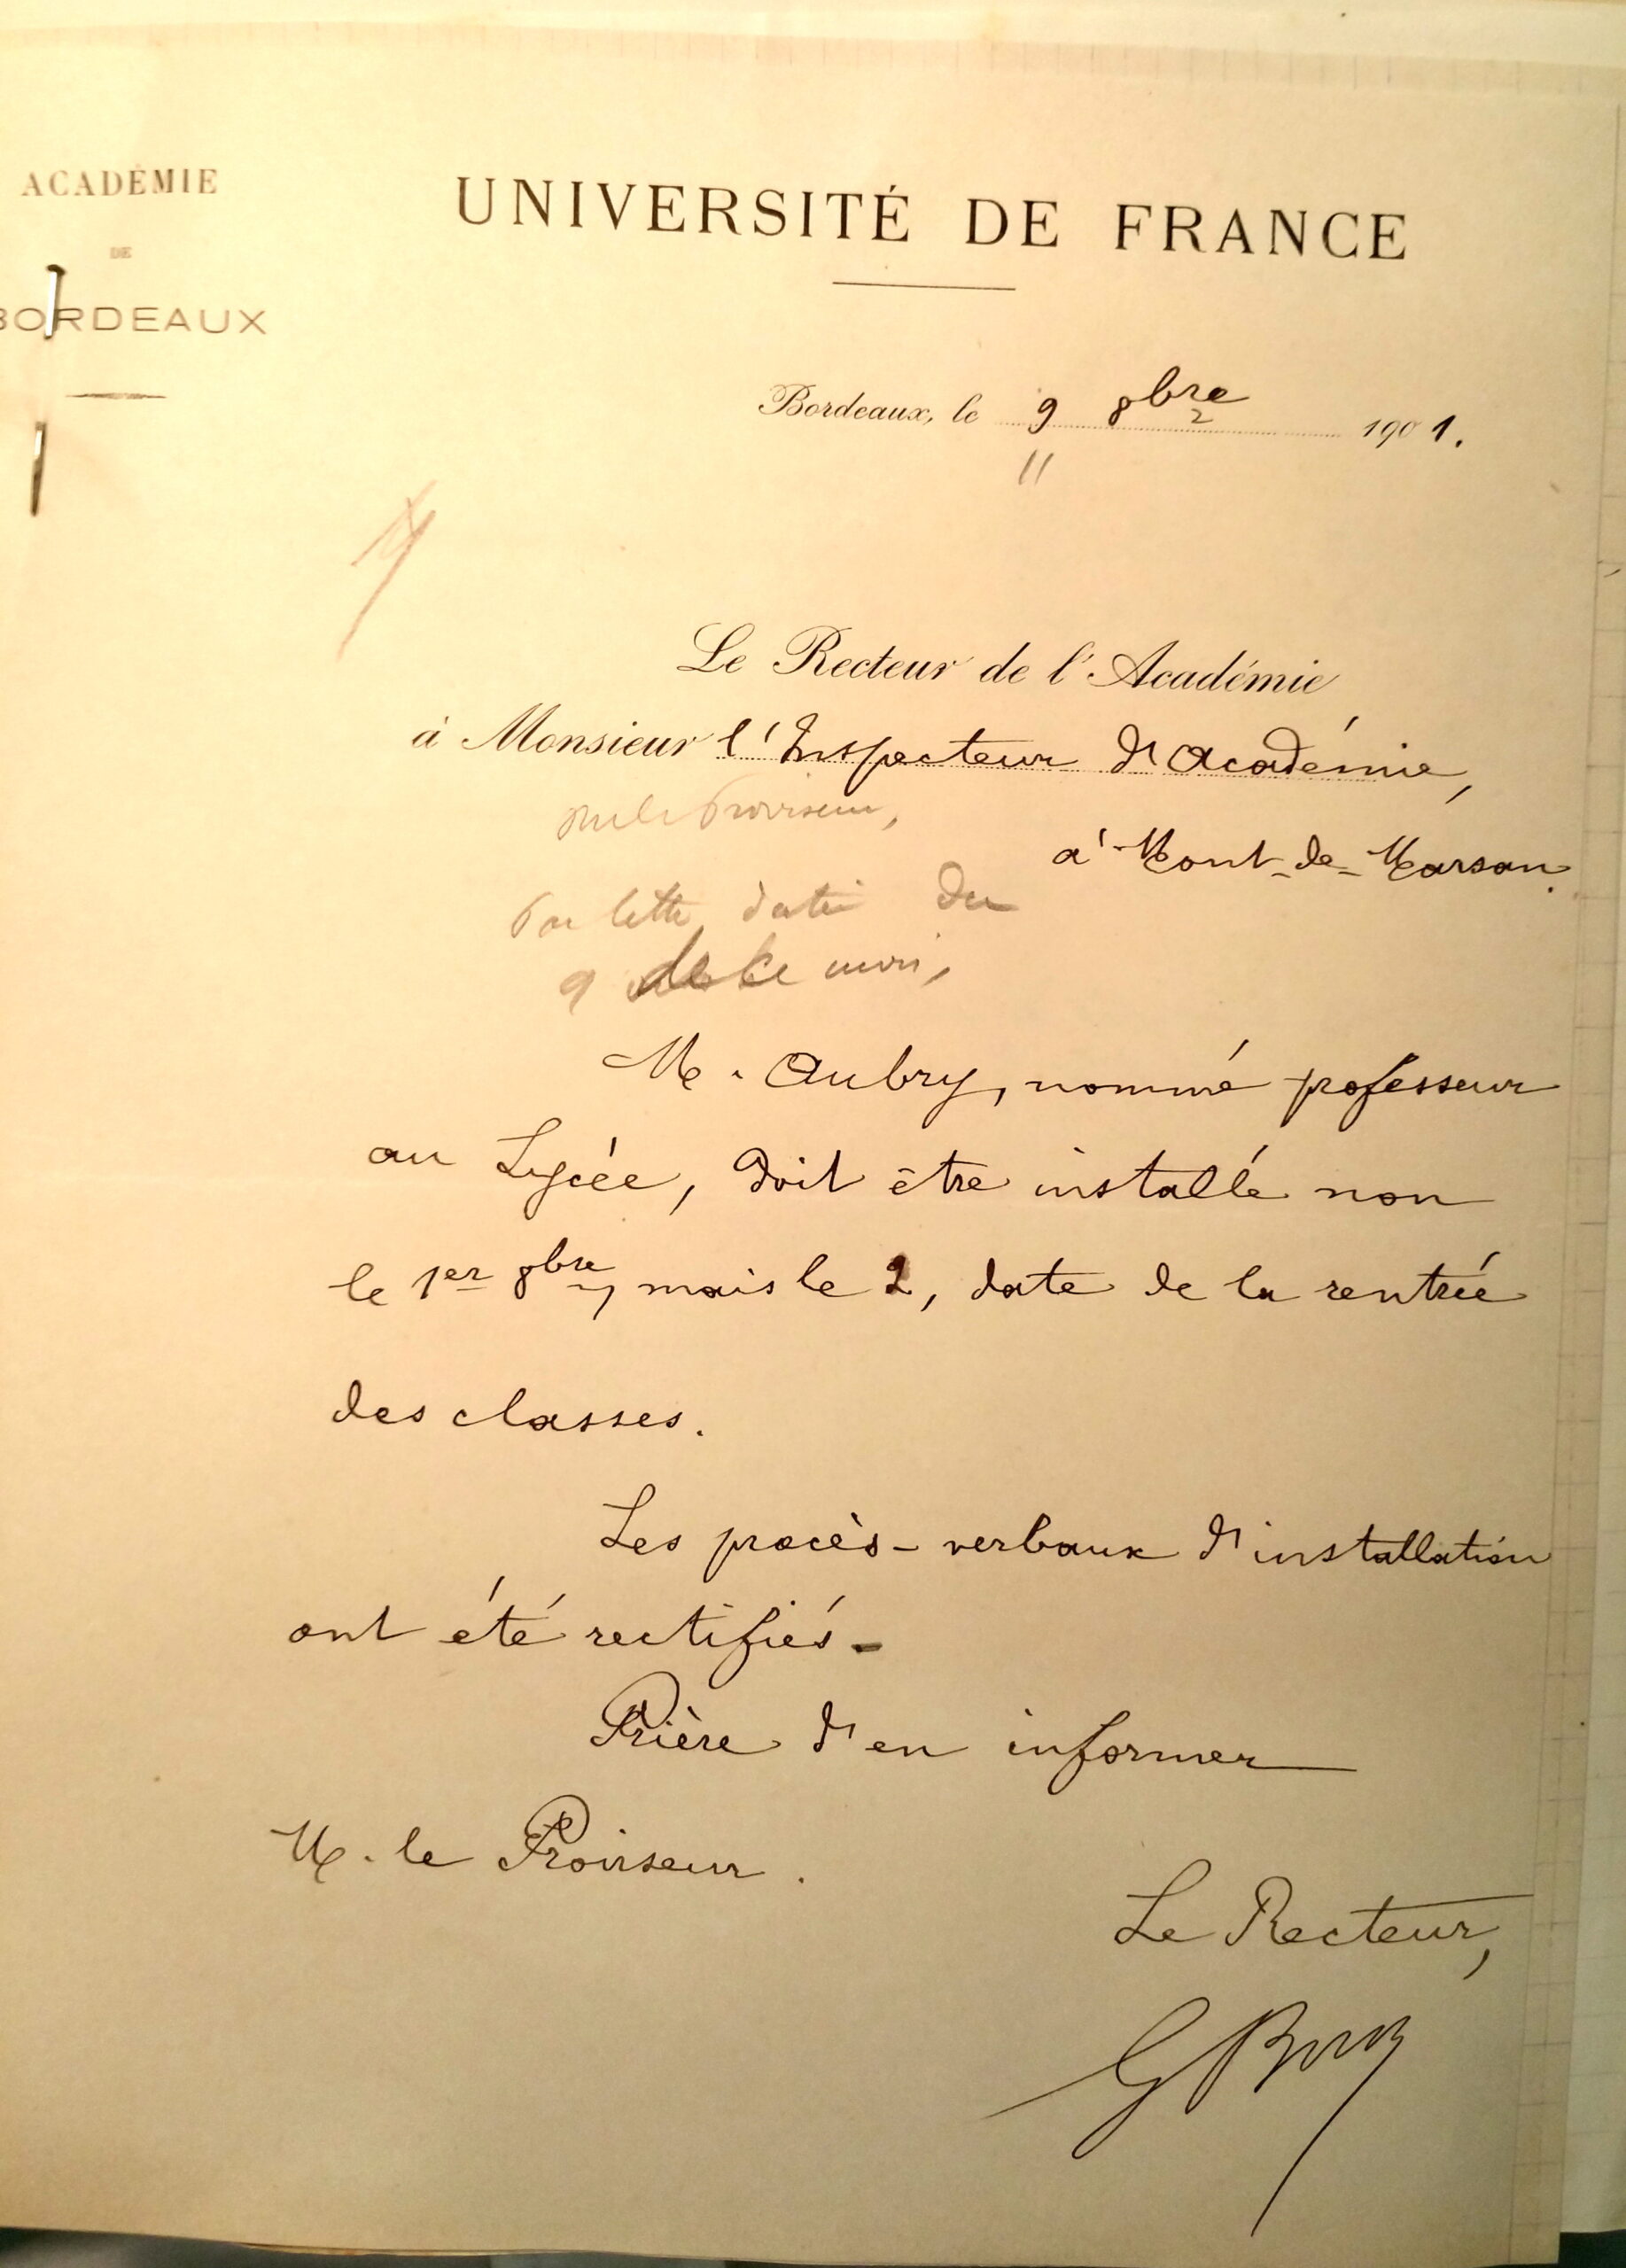 ACADÉMIE
DE
BORDEAUX
UNIVERSITÉ DE FRANCE
Bordeaux, le 9 8bre 1901.
11
Le Recteur de l'Académie
à Monsieur l'Inspecteur d'Académie,
Proviseur,
à Mont-de-Marsan.
Par lettre datée du
9 de ce mois,
M. Aubry, nommé professeur
au Lycée, doit être installé non
le 1er 8bre, mais le 2, date de la rentrée
des classes.
Les procès-verbaux d'installation
ont été rectifiés-
Prière d'en informer
M. le Proviseur.
Le Recteur,